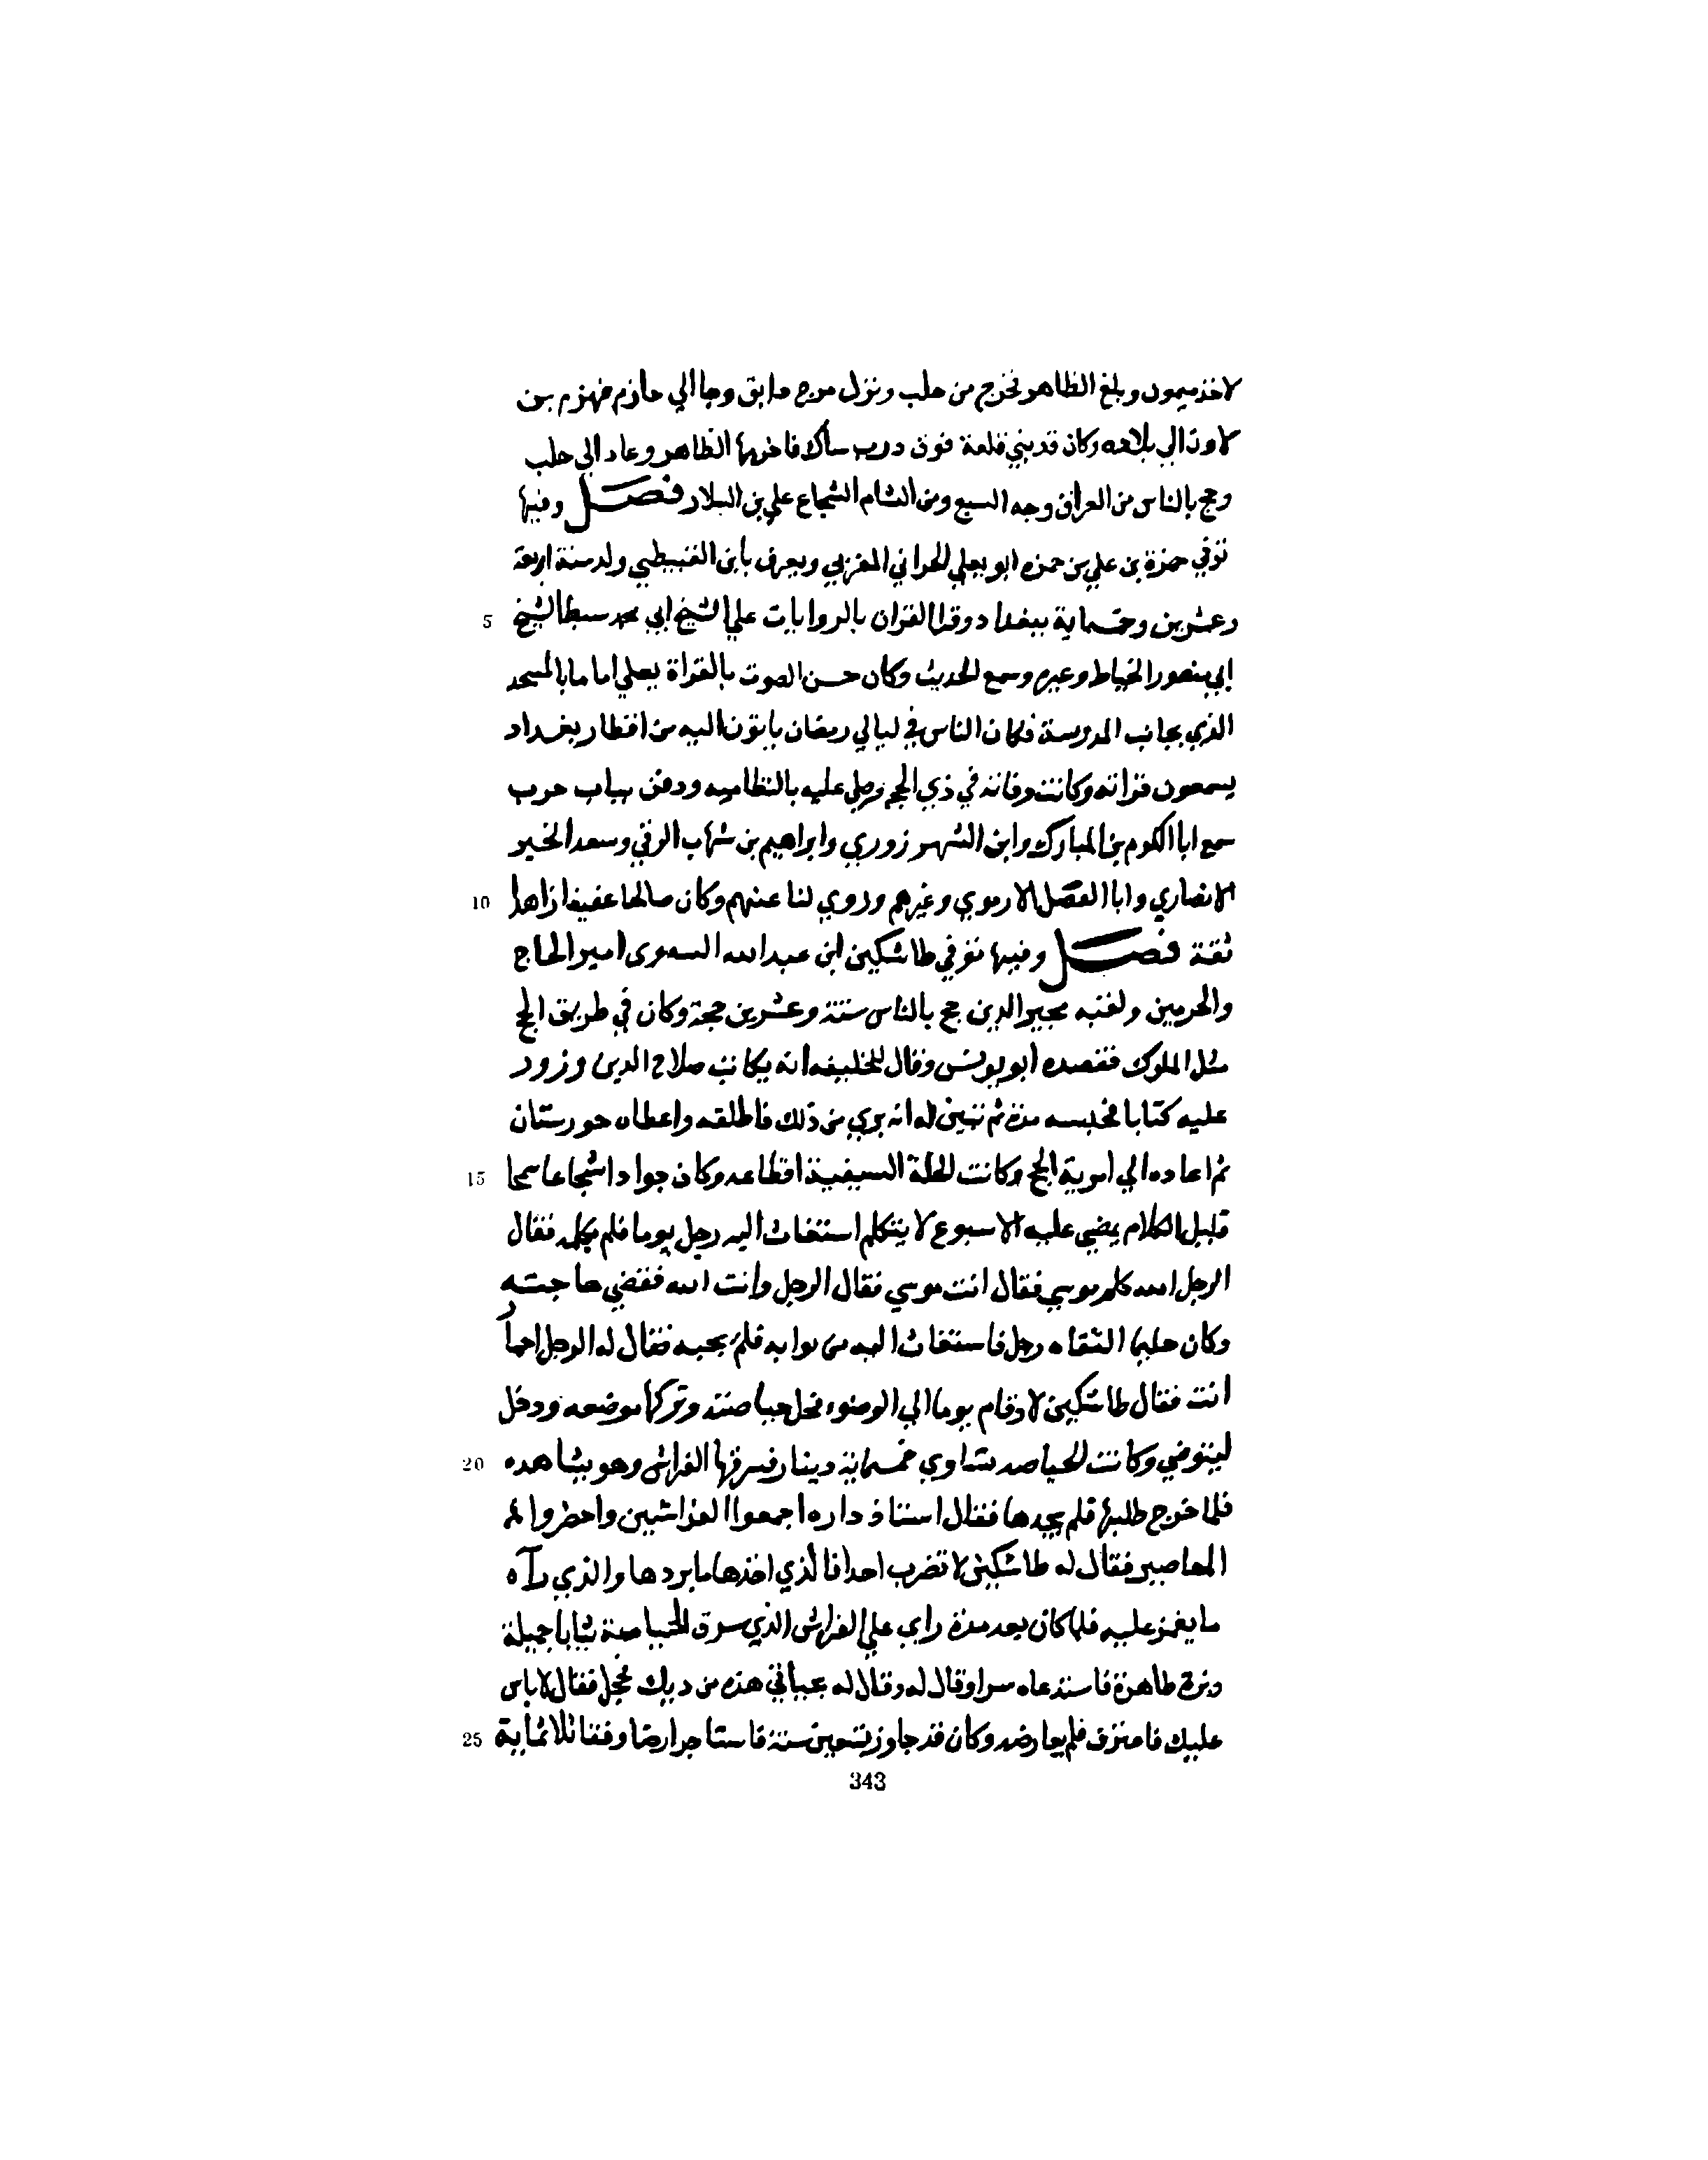 لاخذ ميمون وبلغ الظاهر فخرج من حلب ونزل مرج دابق وجا الي حارم فهزم بن
لاون الي بلاده وكان قد بني قلعة فوق درب ساك فاخربها الظاهر وعاد الي حلب
وحج بالناس من العراق وجه السبع ومن الشام الشجاع علي بن السلار فصل وفيها
توفي حمزة بن علي بن حمزه ابو يعلي الحراني المغربي ويعرف بأبن القبيطي ولد سنة اربعة
وعشرين وخمسماية ببغداد وقرا القران بالروايات علي الشيخ ابي محمد سبط الشيخ
5
ابي منصور الخياط وغيره وسمع الحديث وكان حسن الصوت بالقراة يصلي اماما بالمسجد
الذي بجانب المدرسة فكان الناس في ليالي رمضان ياتون اليه من اقطار بغداد
يسمعون قراته وكانت وفاته في ذي الحجه وصلي عليه بالنظاميه ودفن بباب حرب
سمع ابا الكرم بن المبارك وابن الشهرزوري وابراهيم بن شهاب الرقي وسعد الخير
الانصاري وابا الفضل الارموي وغيرهم وروي لنا عنهم وكان صالحا عفيفا زاهدا
10
ثقة فصل وفيها توفي طاشتكين ابن عبد الله امير الحاج
والحرمين ولقبه مجير الدين حج بالناس ستة وعشرين حجة وكان في طريق الحج
مثل الملوك فقصده ابو يونس وقال للخليفه انه يكاتب صلاح الدين وزور
عليه كتابا فحبسه مدة ثم تبين له انه بري من ذلك فاطلقه واعطاه خورستان
ثم اعاده الي امرية الحج وكانت الحلة السيفية اقطاعه وكان جوادا شجاعا سمحا
15
قليل الكلام يمضي عليه الاسبوع لا يتكلم استغاث اليه رجل يوما فلم يكلمه فقال
الرجل الله كلم موسي فقال انت موسي فقال الرجل وانت الله فقضي حاجته
وكان حليما التقاه رجل فاستغاث اليه من نوابه فلم يجبه فقال له الرجل احمار
انت فقال طاشتكين لا وقام يوما الي الوضوء فحل حياصته وتركها موضعه ودخل
ليتوضي وكانت الحياصه تساوي خمسماية دينار فسرقها الفراش وهو يشاهده
20
فلما خرج طلبها فلم يجدها فقال استاذ داره اجمعوا الفراشين واحضروا لهم
المعاصير فقال له طاشتكين لا تضرب احدا فالذي اخذها ما يردها والذي رآه
ما يغمز عليه فلما كان بعد مدة راي علي الفراش الذي سرق الحياصة ثيابا جميلة
وبزة طاهرة فاستدعاه سرا وقال له وقال له بحياتي هذه من ديك فخجل فقال لا باس
عليك فاعترف فلم يعارضه وكان قد جاوز تسعين سنة فاستاجر ارضا وقفا ثلاثماية
25
343